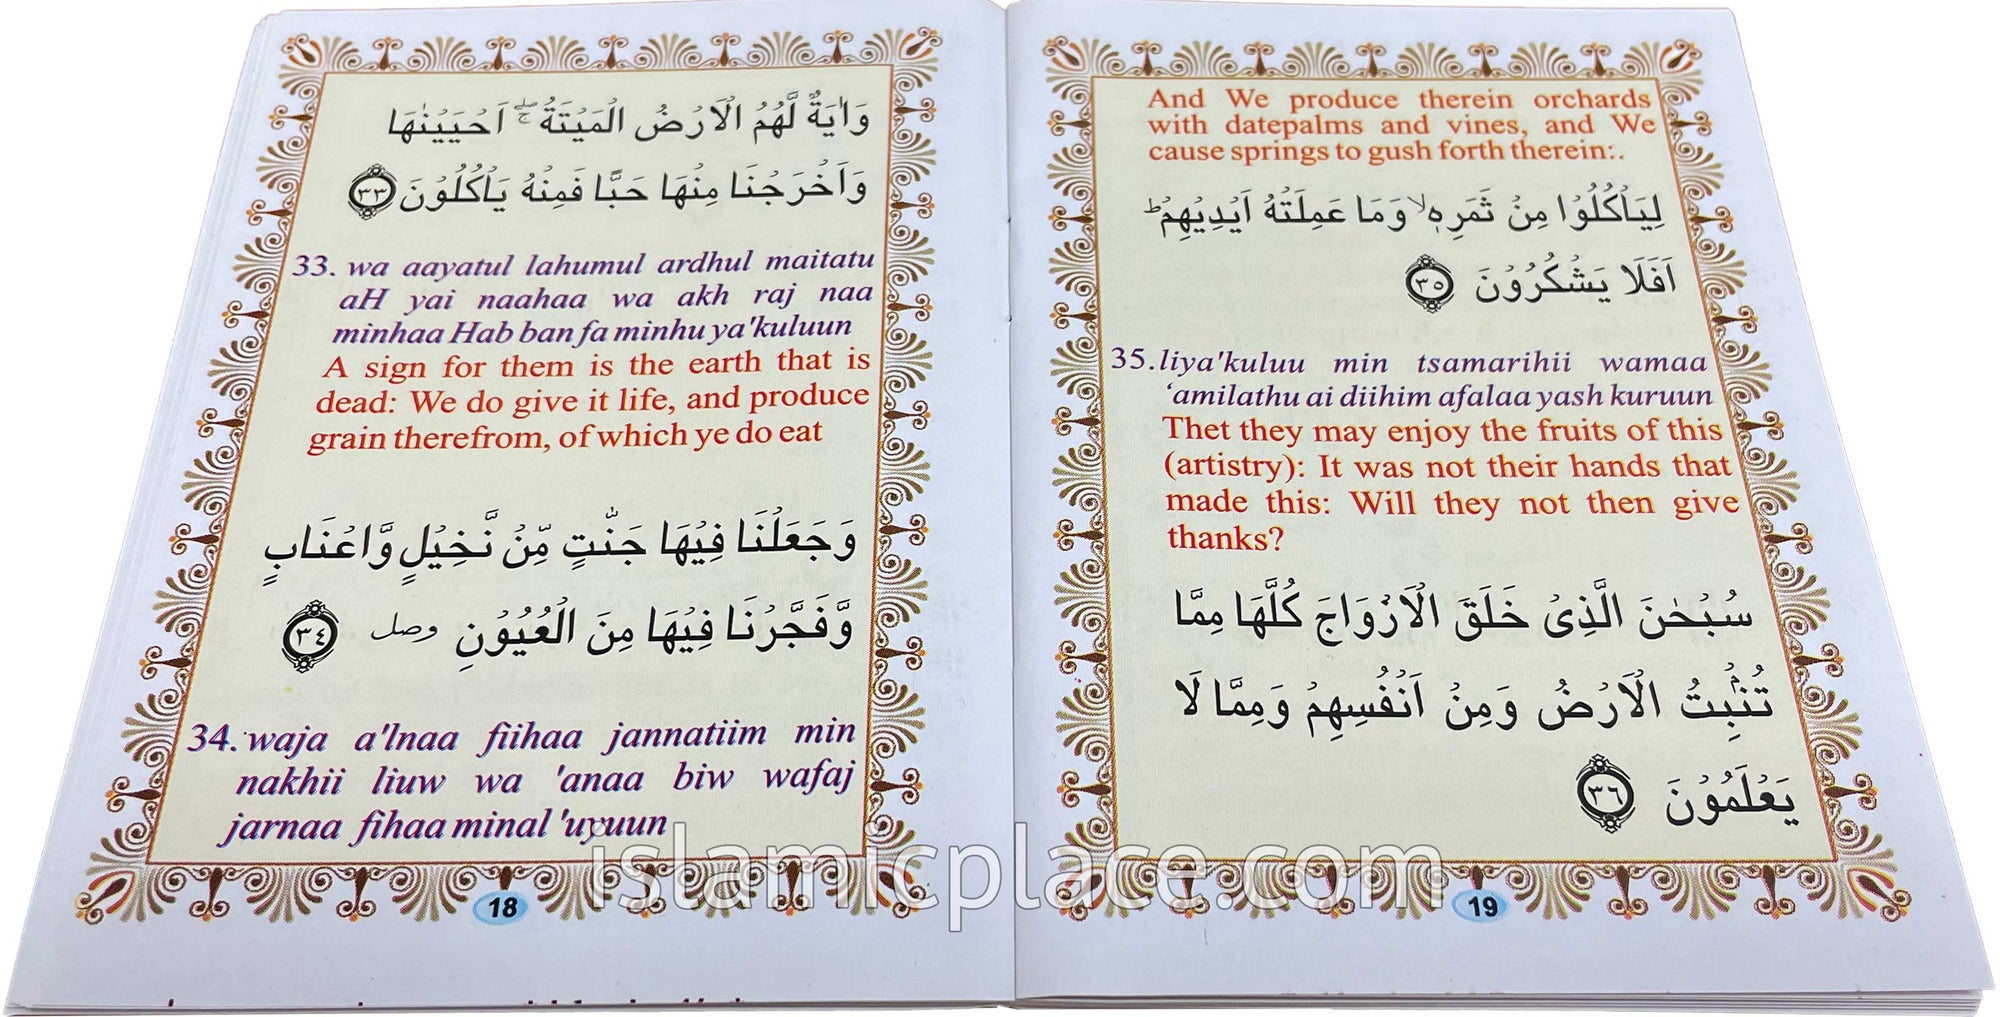 وَاٰيَةٌ لَّهُمُ الْاَرْضُ الْمَيْتَةُ ۖۚ اَحْيَيْنٰهَا
وَاَخْرَجْنَا مِنْهَا حَبًّا فَمِنْهُ يَاْكُلُوْنَ ٣٣
33. wa aayatul lahumul ardhul maitatu
aH yai naahaa wa akh raj naa
minhaa Hab ban fa minhu ya'kuluun
A sign for them is the earth that is
dead: We do give it life, and produce
grain therefrom, of which ye do eat
وَجَعَلْنَا فِيْهَا جَنّٰتٍ مِّنْ نَّخِيْلٍ وَّاَعْنَابٍ
وَّفَجَّرْنَا فِيْهَا مِنَ الْعُيُوْنِ وصل ٣٤
34. waja a'lnaa fiihaa jannatiim min
nakhii liuw wa 'anaa biw wafaj
jarnaa fihaa minal 'uyuun
18
And We produce therein orchards
with datepalms and vines, and We
cause springs to gush forth therein:.
لِيَاْكُلُوْا مِنْ ثَمَرِهٖ ۙ وَمَا عَمِلَتْهُ اَيْدِيْهِمْ ؕ
اَفَلَا يَشْكُرُوْنَ ٣٥
35. liya'kuluu min tsamarihii wamaa
‘amilathu ai diihim afalaa yash kuruun
Thet they may enjoy the fruits of this
(artistry): It was not their hands that
made this: Will they not then give
thanks?
سُبْحٰنَ الَّذِىْ خَلَقَ الْاَزْوَاجَ كُلَّهَا مِمَّا
تُنْۢبِتُ الْاَرْضُ وَمِنْ اَنْفُسِهِمْ وَمِمَّا لَا
يَعْلَمُوْنَ ٣٦
19
islamicplace.com